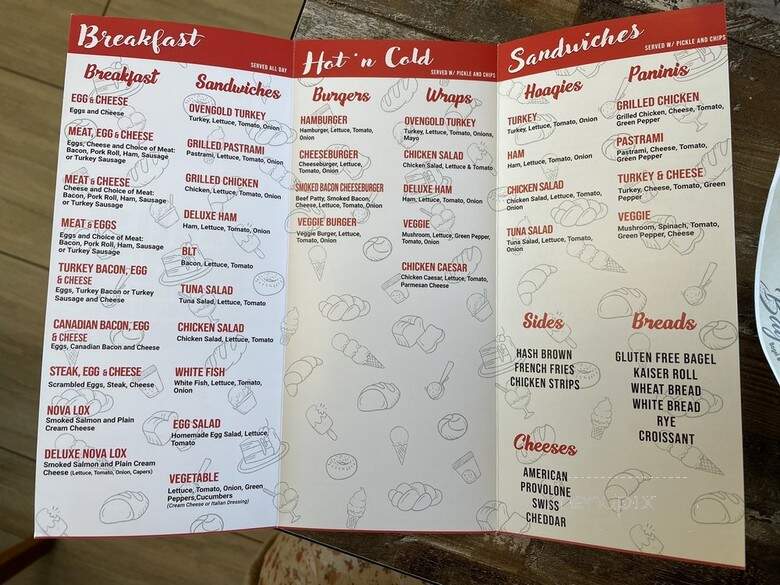 Breakfast
SERVED ALL DAY
Breakfast
EGG & CHEESE
Eggs and Cheese
MEAT, EGG & CHEESE
Eggs, Cheese and Choice of Meat:
Bacon, Pork Roll, Ham, Sausage
or Turkey Sausage
MEAT & CHEESE
Cheese and Choice of Meat:
Bacon, Pork Roll, Ham, Sausage
or Turkey Sausage
MEAT & EGGS
Eggs and Choice of Meat:
Bacon, Pork Roll, Ham, Sausage
or Turkey Sausage
TURKEY BACON, EGG
& CHEESE
Eggs, Turkey Bacon or Turkey
Sausage and Cheese
CANADIAN BACON, EGG
& CHEESE
Eggs, Canadian Bacon and Cheese
STEAK, EGG & CHEESE
Scrambled Eggs, Steak, Cheese
NOVA LOX
Smoked Salmon and Plain
Cream Cheese
DELUXE NOVA LOX
Smoked Salmon and Plain Cream
Cheese (Lettuce, Tomato, Onion, Capers)
Sandwiches
OVENGOLD TURKEY
Turkey, Lettuce, Tomato, Onion
GRILLED PASTRAMI
Pastrami, Lettuce, Tomato, Onion
GRILLED CHICKEN
Chicken, Lettuce, Tomato, Onion
DELUXE HAM
Ham, Lettuce, Tomato, Onion
BLT
Bacon, Lettuce, Tomato
TUNA SALAD
Tuna Salad, Lettuce, Tomato
CHICKEN SALAD
Chicken Salad, Lettuce, Tomato
WHITE FISH
White Fish, Lettuce, Tomato,
Onion
EGG SALAD
Homemade Egg Salad, Lettuce,
Tomato
VEGETABLE
Lettuce, Tomato, Onion, Green
Peppers,Cucumbers
(Cream Cheese or Italian Dressing)
Hot 'n Cold
SERVED W/ PICKLE AND CHIPS
Burgers
HAMBURGER
Hamburger, Lettuce, Tomato,
Onion
CHEESEBURGER
Cheeseburger, Lettuce,
Tomato, Onion
SMOKED BACON CHEESEBURGER
Beef Patty, Smoked Bacon,
Cheese, Lettuce, Tomato, Onion
VEGGIE BURGER
Veggie Burger, Lettuce,
Tomato, Onion
Wraps
OVENGOLD TURKEY
Turkey, Lettuce, Tomato, Onions,
Mayo
CHICKEN SALAD
Chicken Salad, Lettuce & Tomato
DELUXE HAM
Ham, Lettuce, Tomato, Onion
VEGGIE
Mushroom, Lettuce, Green Pepper,
Tomato, Onion
CHICKEN CAESAR
Chicken Caesar, Lettuce, Tomato,
Parmesan Cheese
Sandwiches
SERVED W/ PICKLE AND CHIPS
Hoagies
TURKEY
Turkey, Lettuce, Tomato, Onion
HAM
Ham, Lettuce, Tomato, Onion
CHICKEN SALAD
Chicken Salad, Lettuce, Tomato,
Onion
TUNA SALAD
Tuna Salad, Lettuce, Tomato,
Onion
Paninis
GRILLED CHICKEN
Grilled Chicken, Cheese, Tomato,
Green Pepper
PASTRAMI
Pastrami, Cheese, Tomato,
Green Pepper
TURKEY & CHEESE
Turkey, Cheese, Tomato, Green
Pepper
VEGGIE
Mushroom, Spinach, Tomato,
Green Pepper, Cheese
Sides
HASH BROWN
FRENCH FRIES
CHICKEN STRIPS
Cheeses
AMERICAN
PROVOLONE
SWISS
CHEDDAR
Breads
GLUTEN FREE BAGEL
KAISER ROLL
WHEAT BREAD
WHITE BREAD
RYE
CROISSANT